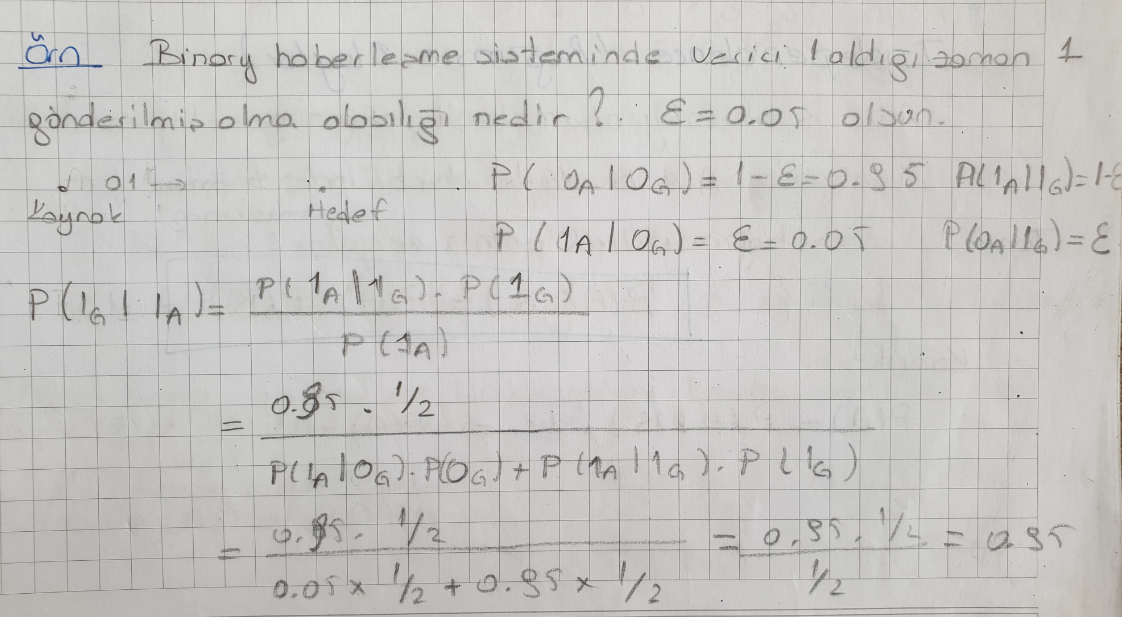 Örn Binary haberleşme sisteminde verici 1 aldığı zaman 1
gönderilmiş olma olasılığı nedir? ε = 0.05 olsun.
01 → P(0A|0G) = 1-ε = 0.95 P(1A|1G) = 1-ε
Kaynak Hedef P(1A|0G) = ε = 0.05 P(0A|1G) = ε
P(1G|1A) = P(1A|1G). P(1G)
P(1A)
= 0.95 . 1/2
P(1A|0G). P(0G) + P(1A|1G). P(1G)
= 0.95 . 1/2 = 0.95 . 1/2 = 0.95
0.05 x 1/2 + 0.95 x 1/2 1/2